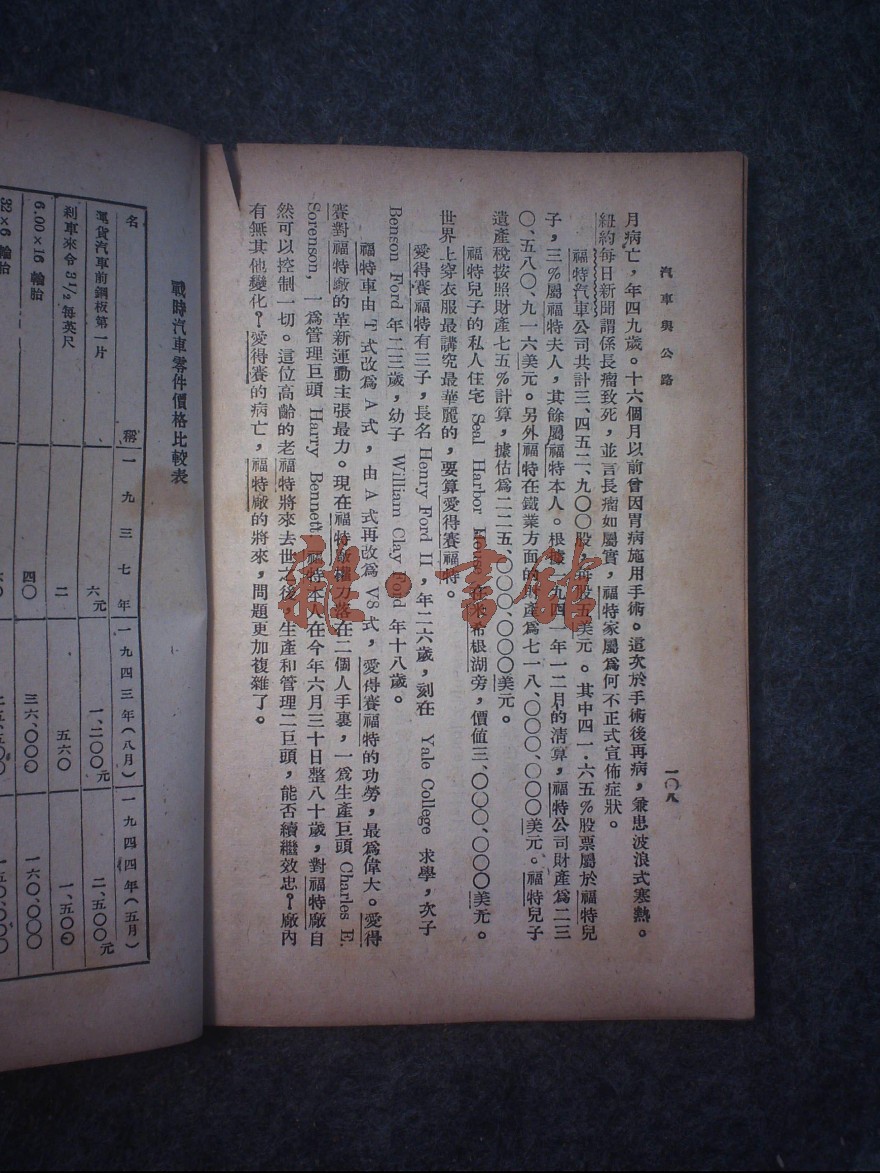 汽車與公路
一〇八
月病亡，年四九歲。十六個月以前曾因胃病施用手術。這次於手術後再病，兼患波浪式寒熱。
紐約每日新聞謂係長瘤致死，並言長瘤如屬實，福特家屬爲何不正式宣佈症狀。
福特汽車公司共計三、四五二、九〇〇股，每股五美元。其中四一・六五％股票屬於福特兒
子，三％屬福特夫人，其餘屬福特本人。根據一九四一年一二月的清算，福特公司財產爲二三
〇、五八〇、九一六美元。另外福特在鐵業方面的財產爲七一八、〇〇〇、〇〇〇美元。福特兒子
遺產稅按照財產七五％計算，據估爲二二五、〇〇〇、〇〇〇美元。
福特兒子的私人住宅 Seal Harbor House 在米希根湖旁，價值三、〇〇〇、〇〇〇美元。
世界上穿衣服最講究最華麗的，要算愛得賽福特。
愛得賽福特有三子，長名 Henry Ford II ，年二六歲，刻在 Yale College 求學，次子
Benson Ford 年二三歲，幼子 William Clay Ford 年十八歲。
福特車由T式改爲A式，由A式再改爲V8式，愛得賽福特的功勞，最爲偉大。愛得
賽對福特廠的革新運動主張最力。現在福特廠權力落在二個人手裏，一爲生產巨頭 Charles E.
Sorenson，一爲管理巨頭 Harry Bennett 福特本人在今年六月三十日整八十歲，對福特廠自
然可以控制一切。這位高齡的老福特將來去世之後，生產和管理二巨頭，能否續繼效忠？廠內
有無其他變化？愛得賽的病亡，福特廠的將來，問題更加複雜了。
雜・書館
戰時汽車零件價格比較表
名稱 一九三七年 一九四三年(八月) 一九四四年(五月)
萬貨汽車前鋼板第一片 六元 一、二〇〇元 二、五〇〇元
刹車來令 3½ 每英尺 二 五六〇 一、五〇〇
6.00×16 輪胎 四〇 三六、〇〇〇 一六〇、〇〇〇
32×6 輪胎